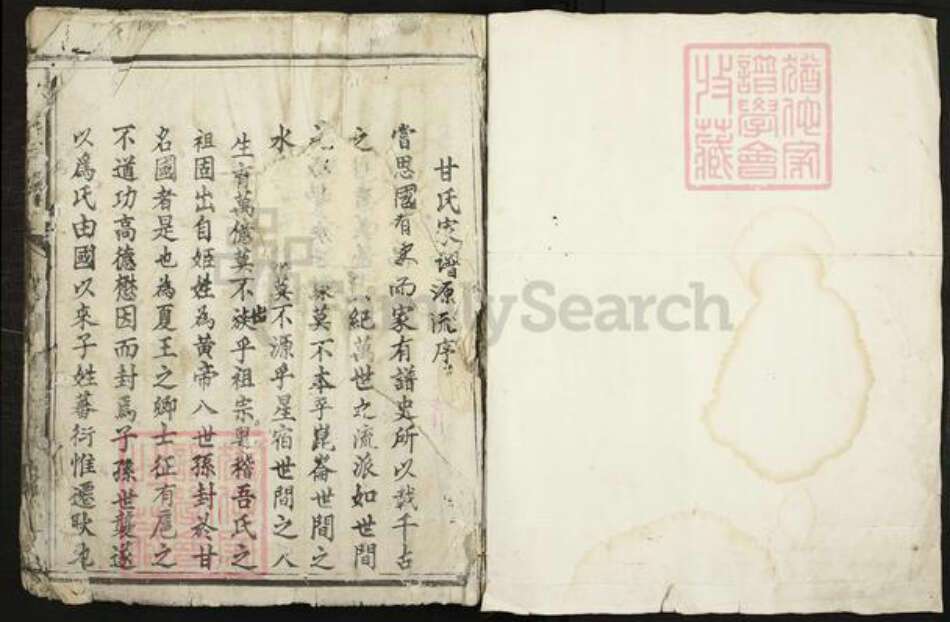 猶他家
譜學會
收藏
甘氏宗譜源流序
嘗思國有史而家有譜史所以載千古
之 紀萬世之流派如世間
莫不本乎崑崙世間之
水 莫不源乎星宿世間之人
生育萬億莫不族乎祖宗粤稽吾氏之
世
祖固出自姬姓為黃帝八世孫封於甘
名國者是也為夏王之卿士征有扈之
不道功高德懋因而封焉子孫世襲遂
以為氏由國以來子姓蕃衍惟遷
FamilySearch